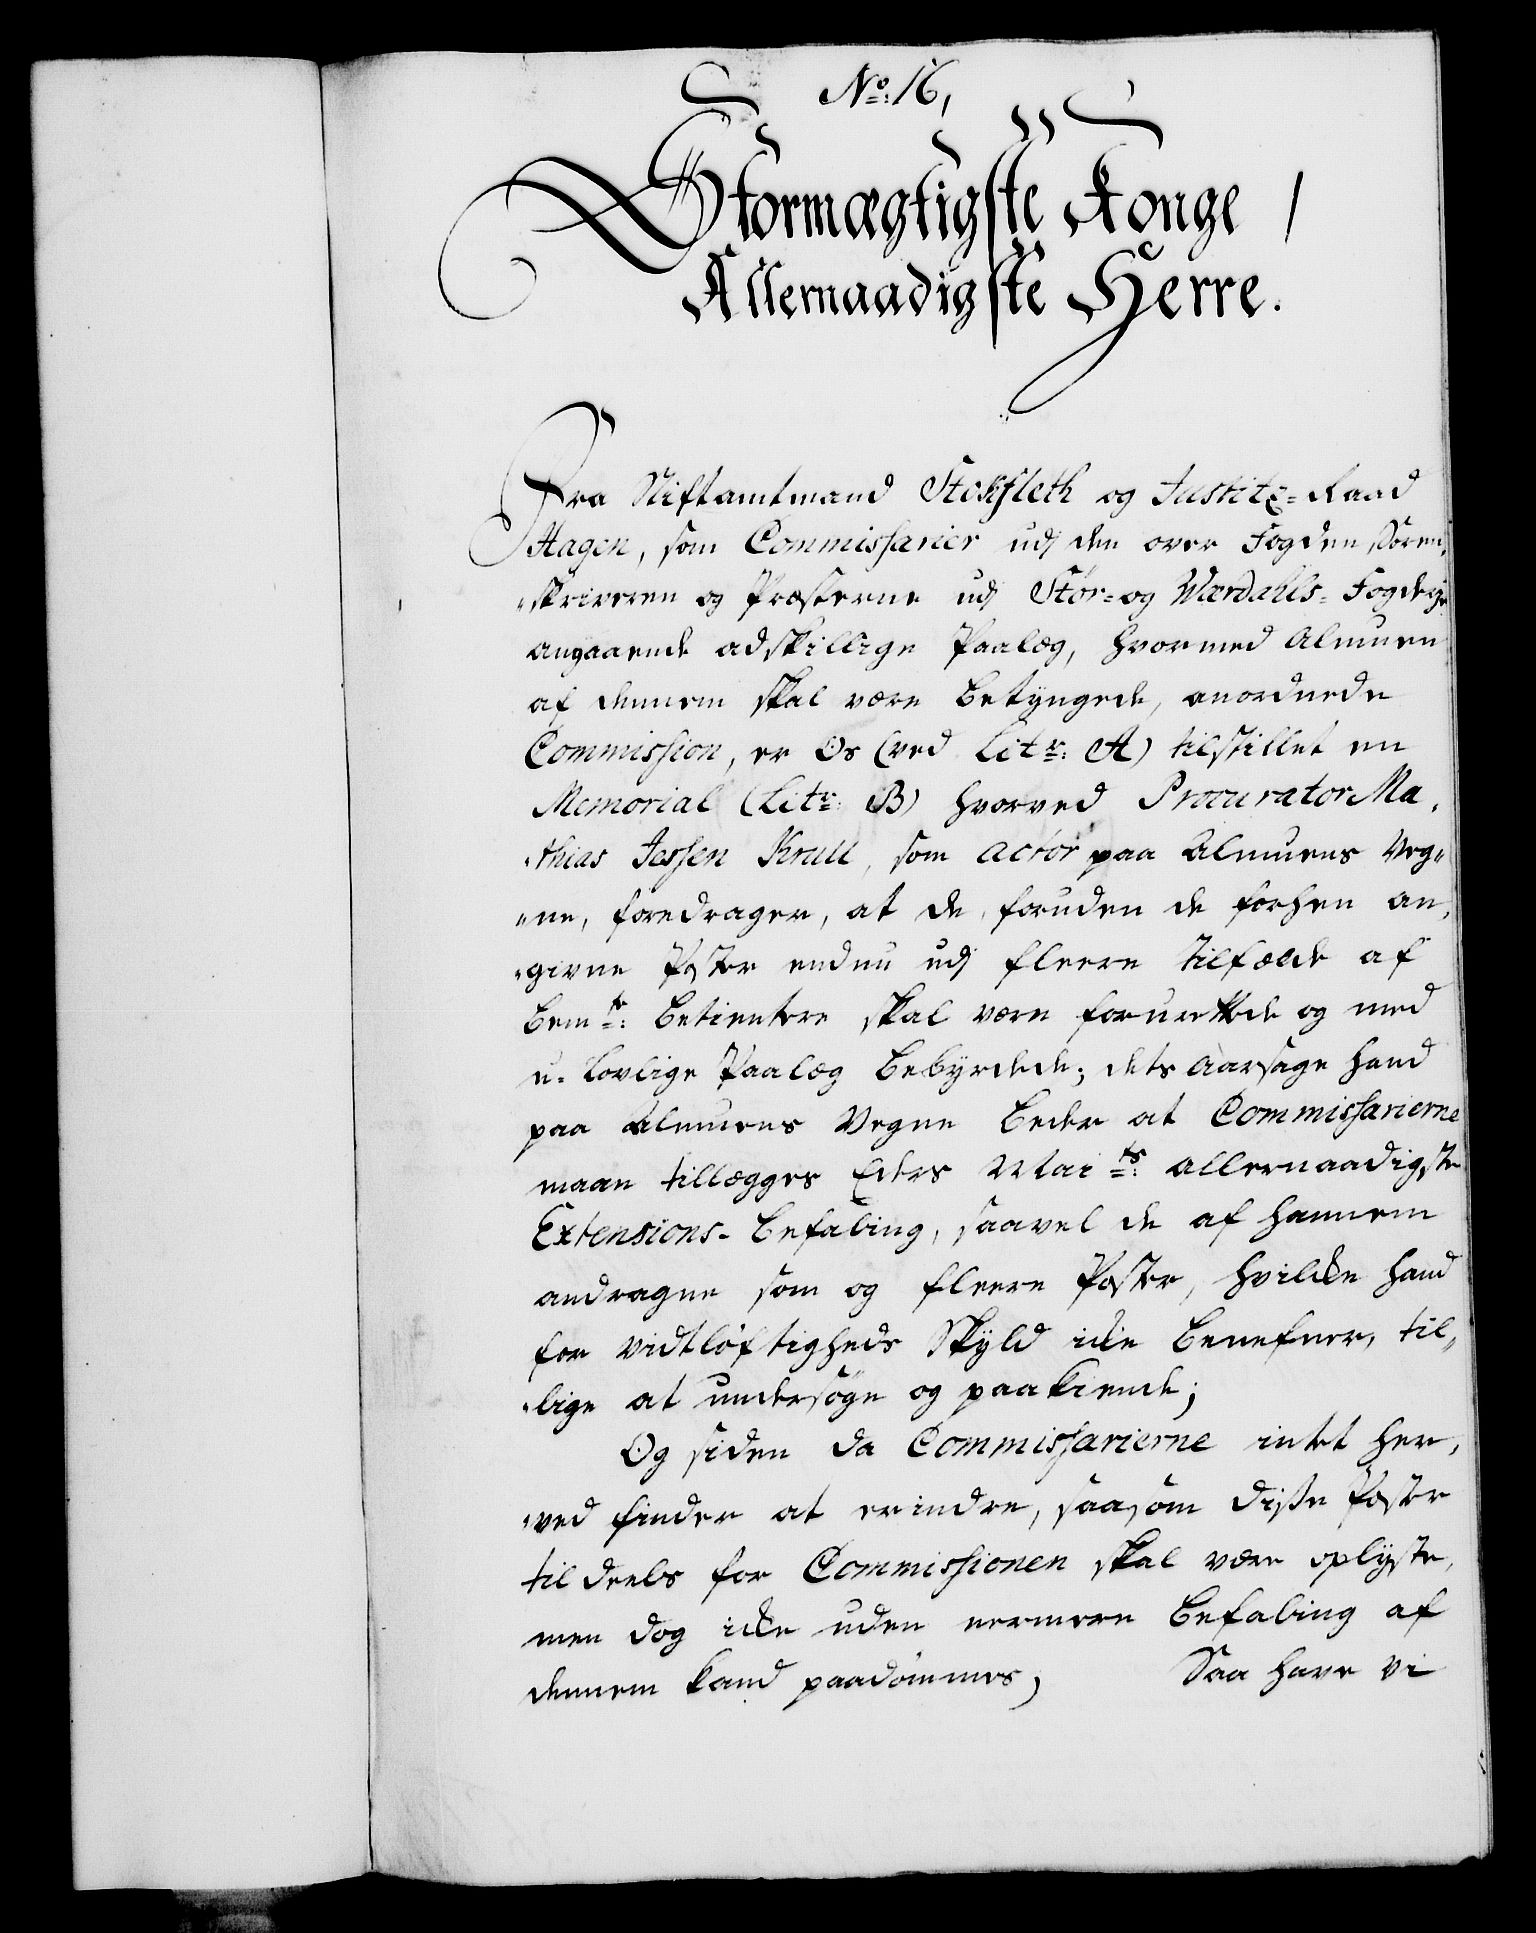 No: 16,
Stormægtigste Konge /
Allernaadigste Herre.
Fra Stiftamtmand Stokfleth og Justitz=Raad
Hagen, som Commissarier udj den over Fogden, Soren,
„skriveren og Præsterne udj Stør= og Wærdahls= Fogderje
angaaende adskillige Paalæg, hvormed Almuen
af dennem skal være betyngede, anordnede
Commission, er Os (ved Litr: A) tilstillet en
Memorial (Litr: B) hvorved Procurator Ma,
„thias Jessen Krull, som actor paa Almuens Veg„
„ne, foredrager, at de, foruden de forhen an,
„givne Poster endnu udj fleere tilfælde af
bemte: betientere skal være forurettede og med
u=lovlige Paalæg bebyrdede; dets aarsage hand
paa Almuens Vegne beder at Commissarierne
maae tillægges Eders Maits: allernaadigste
Extensions- befaling, saavel de af hannem
andragne som og fleere Poster, hvilcke hand
for vidtløftigheds Skyld icke benefner, til„
„lige at undersøge og paakiende;
Og siden da Commissarierne intet her,
„ved finder at erindre, saasom disse Poster
til deels for Commissionen skal være oplyste,
men dog icke uden nermere befaling af
dennem kand paadømmes, Saa have vi